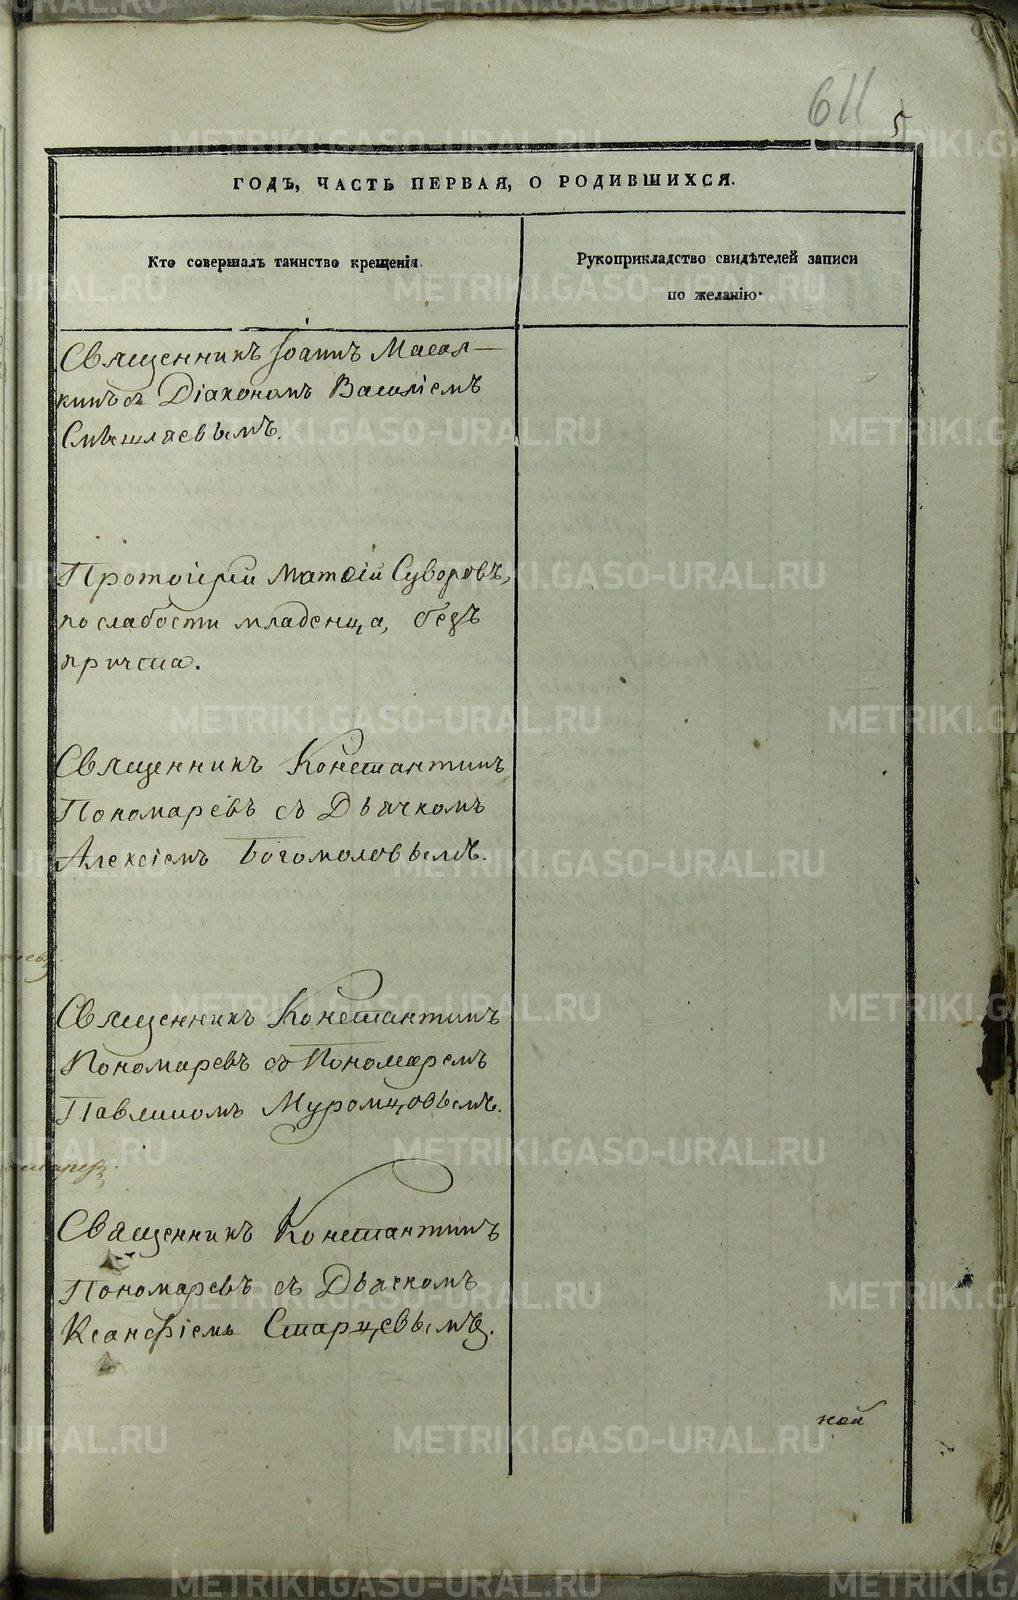 611
5
ГОДЪ, ЧАСТЬ ПЕРВАЯ, О РОДИВШИХСЯ.
Кто совершалъ таинство крещенія.
Рукоприкладство свидѣтелей записи
по желанію.
Священникъ Іоаннъ Масал-
кинъ съ Діакономъ Василіемъ
Смышляевымъ.
Протоіерей Матѳій Суворовъ,
по слабости младенца, безъ
причта.
Священникъ Константинъ
Пономаревъ съ Дьячкомъ
Алексіемъ Богомоловымъ.
Священникъ Константинъ
Пономаревъ съ Пономаремъ
Павлиномъ Муромцовымъ.
Священникъ Константинъ
Пономаревъ съ Дьячкомъ
Ксанфіемъ Старцевымъ.
ной
METRIKI.GASO-URAL.RU